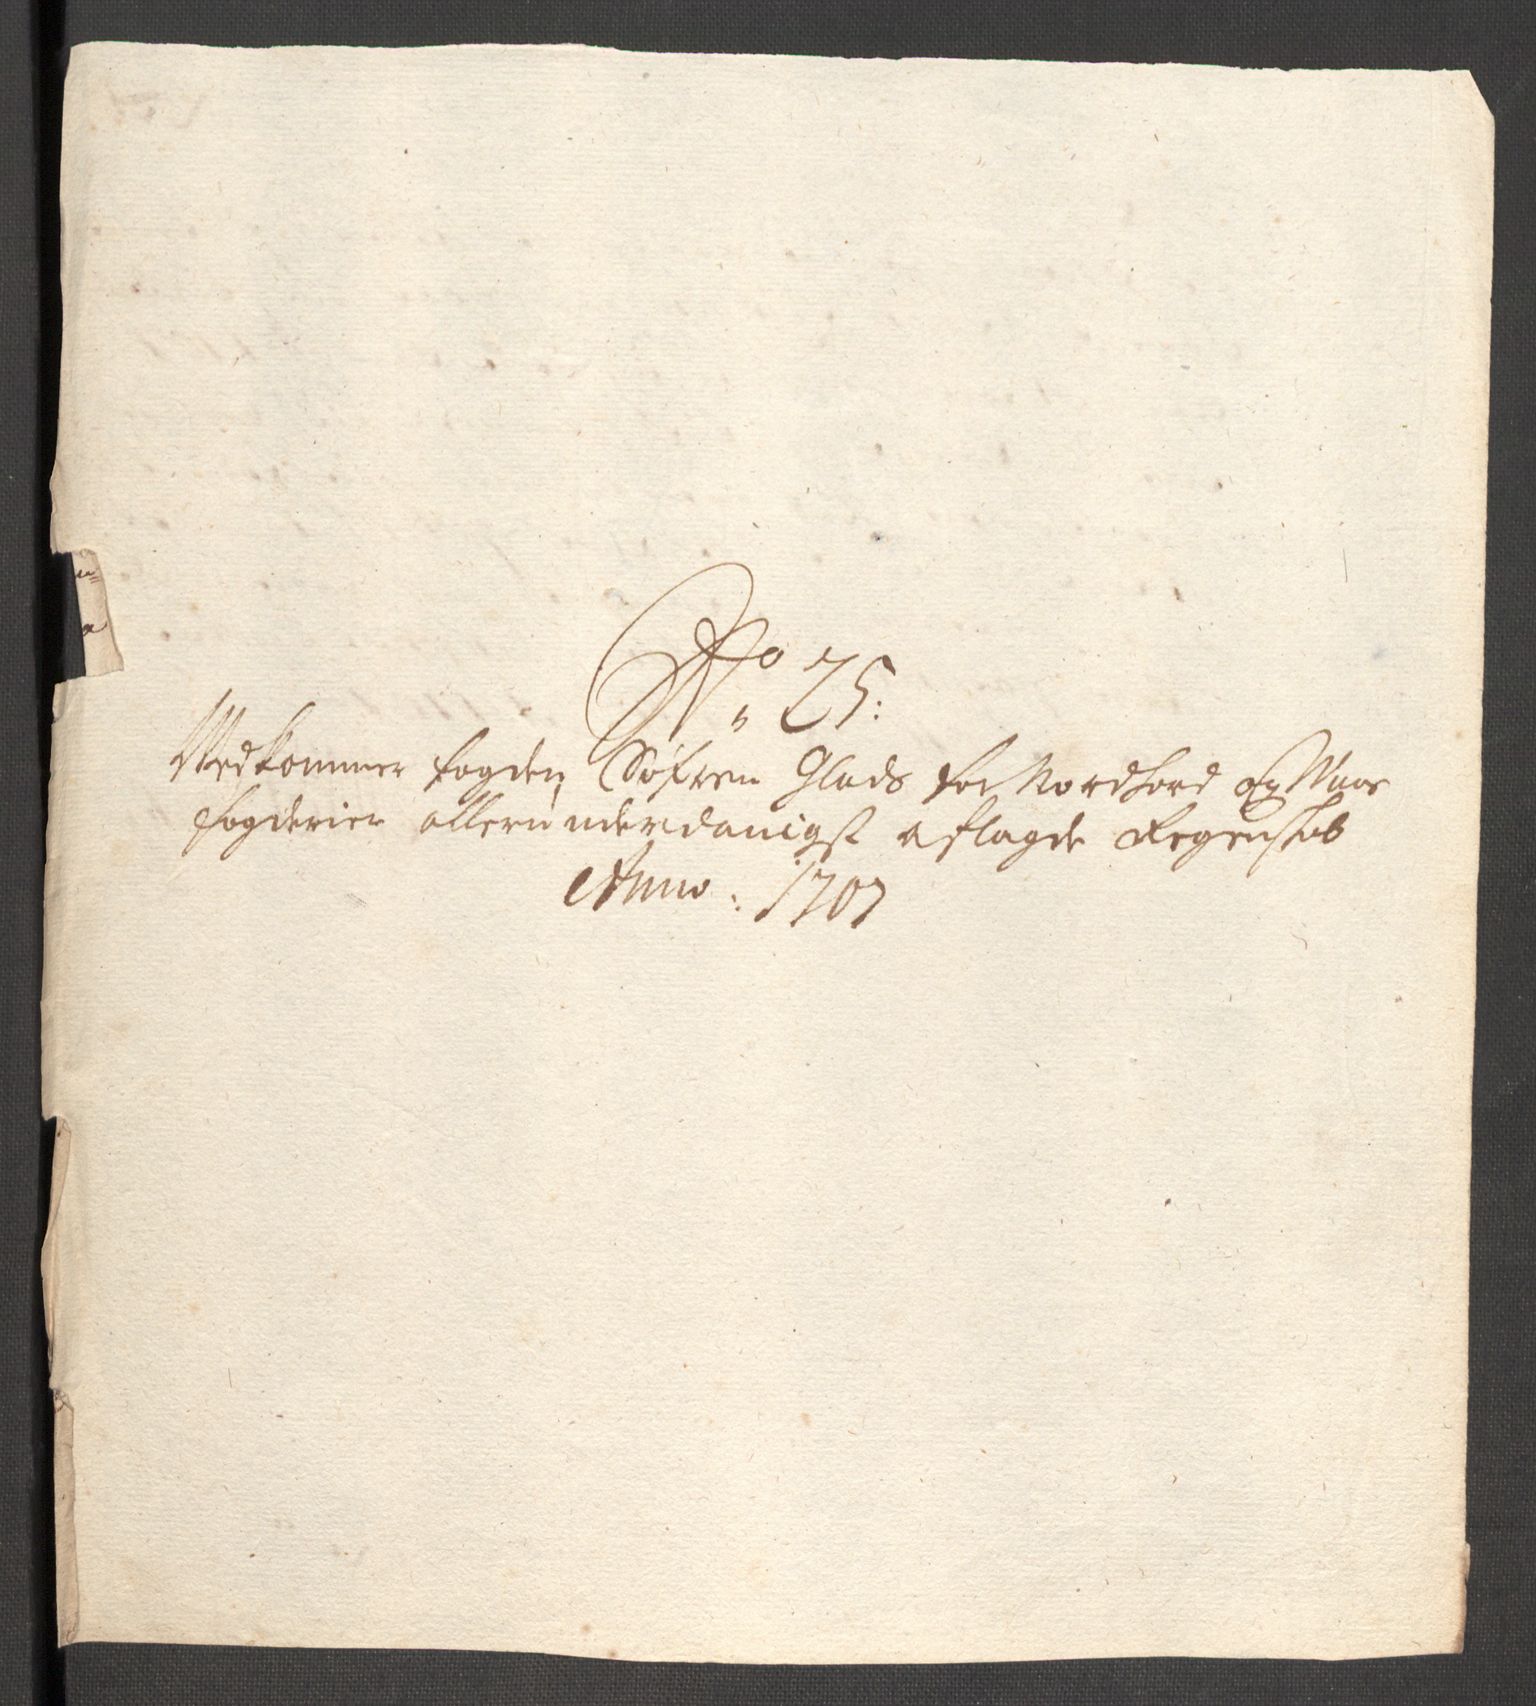 No 25:
Vedkommer fogden Søfren Glads for Nordhord og Waas
fogderier allerunderdanigst aflagde Regenskab
Anno: 1707